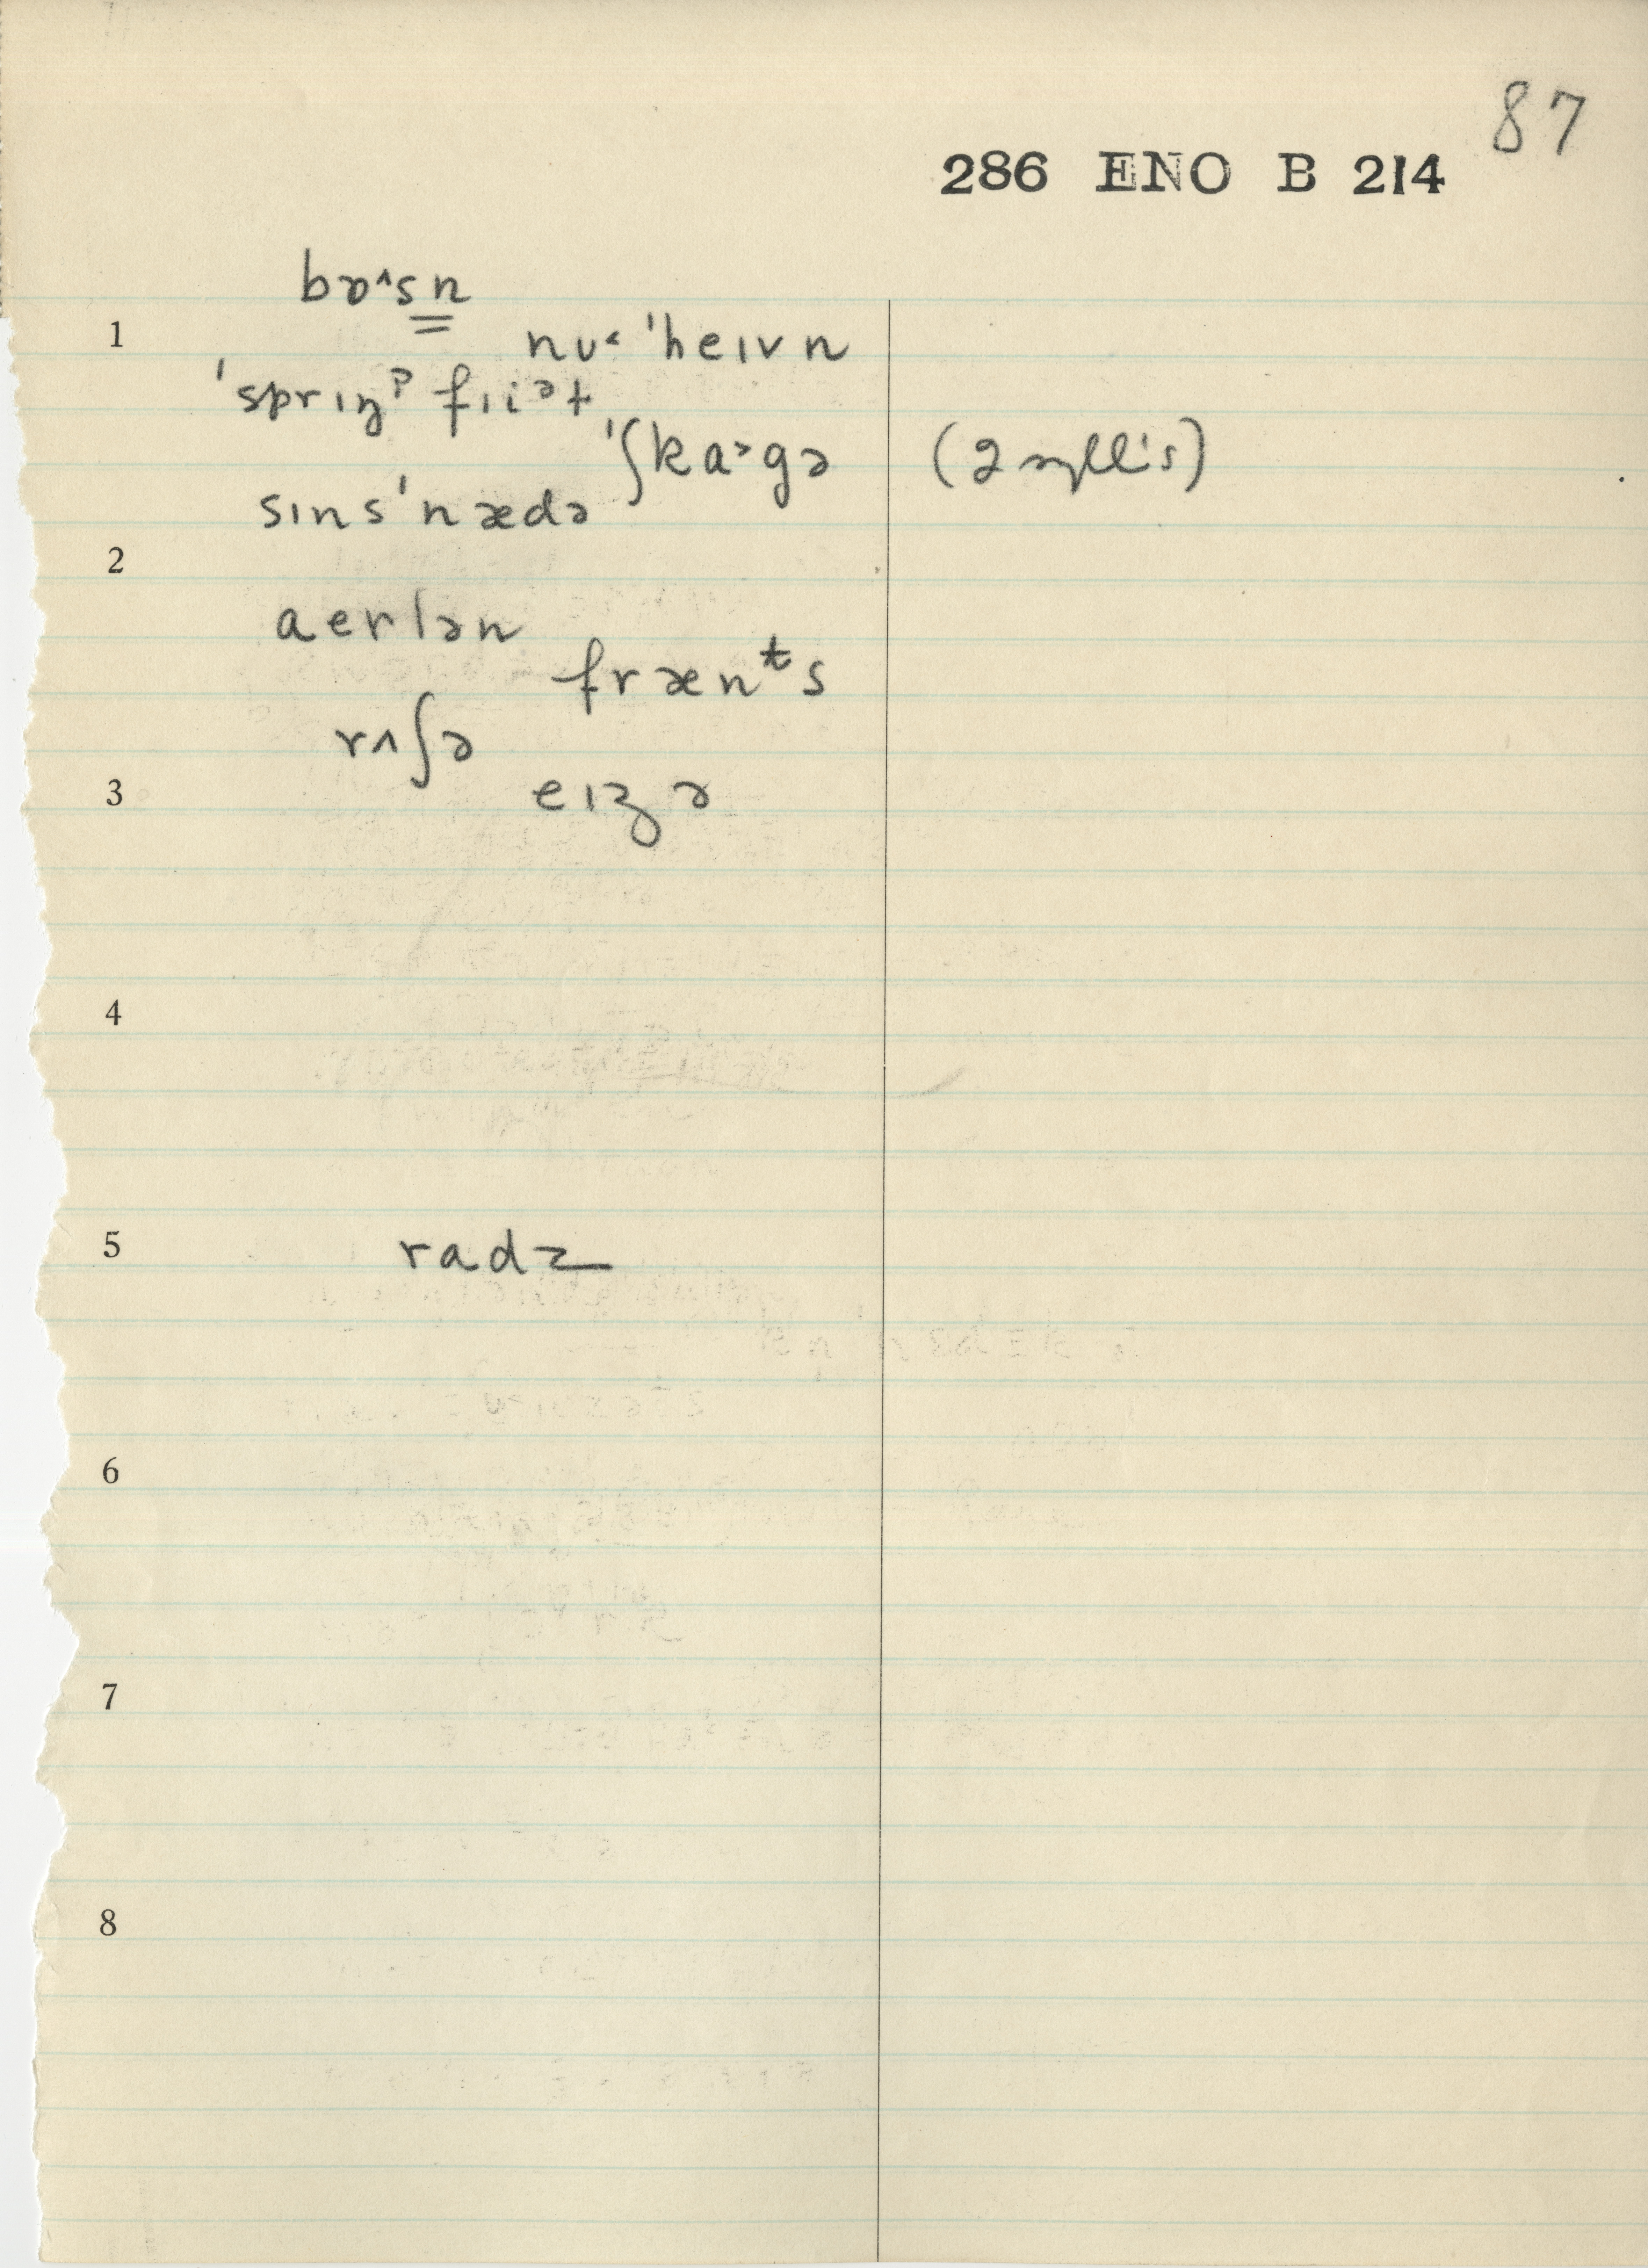 87
286 ENO B 214
bɒ˄sn
1
nu˂ 'heɪvn
'sprɪŋᵖ fɪiᵊɫ
'ʃka˃gə (2 syll's)
sɪns'nædə
2
aerlən
frænᵗs
rʌʃə
3
eɪʒə
4
5
radz
6
7
8